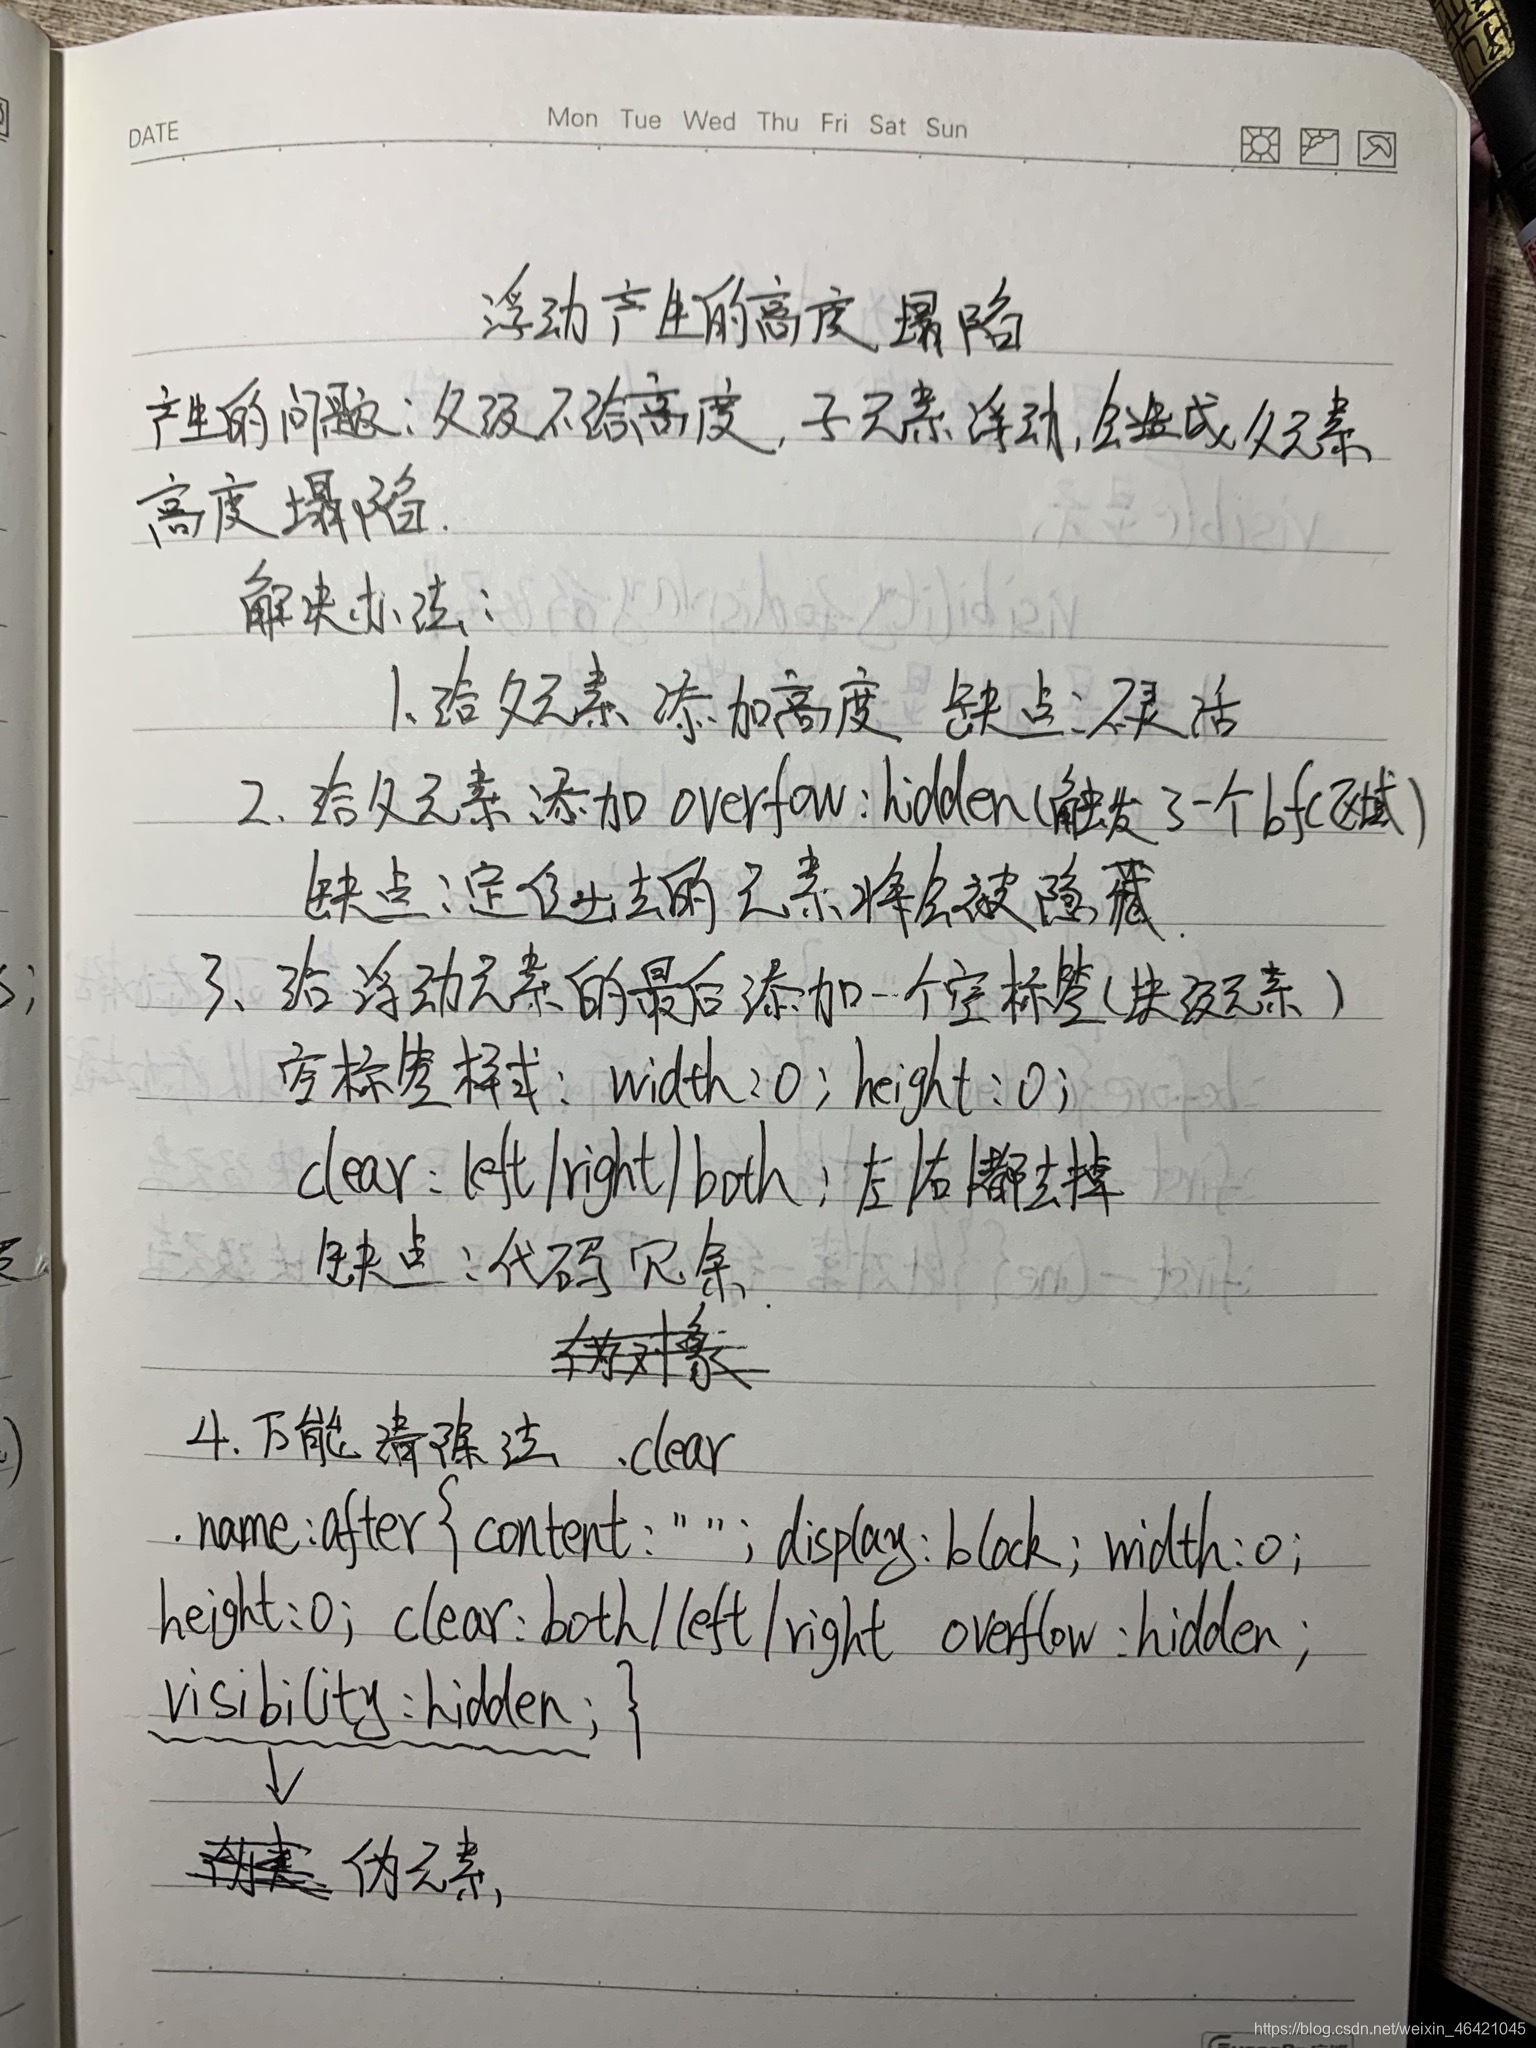 DATE Mon Tue Wed Thu Fri Sat Sun
浮动产生的高度塌陷
产生的问题:父级不给高度,子元素浮动,会造成父元素
高度塌陷.
解决办法:
1.给父元素添加高度 缺点:不灵活
2.给父元素添加overfow:hidden(触发了一个bfc区域)
缺点:定位出去的元素将会被隐藏.
3、给浮动元素的最后添加一个空标签(块级元素)
空标签样式:width:0;height:0;
clear:left/right/both;左/右/都去掉
缺点:代码冗余.
伪对象
4.万能清除法 .clear
.name:after{content:"";display:block;width:0;
height:0; clear:both/left/right overflow:hidden;
visibility:hidden;}
↓
伪元素,
https://blog.csdn.net/weixin_46421045